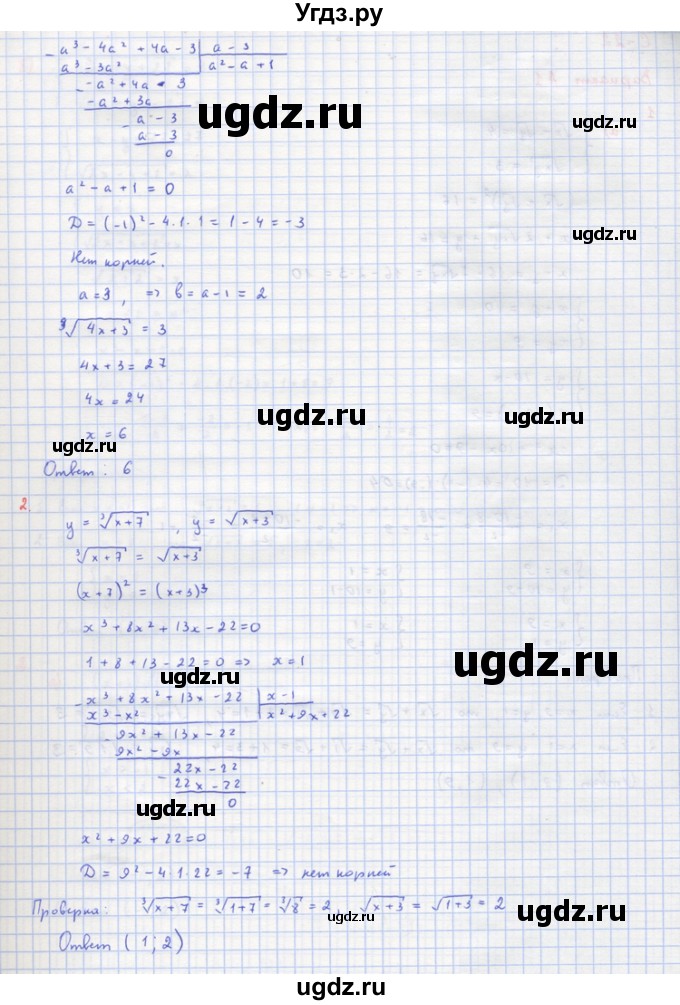 Угдз.ру
a³ - 4a² + 4a - 3 | a - 3
a³ - 3a² | a² - a + 1
- a² + 4a - 3
- a² + 3a
a - 3
a - 3
0
ugdz.ru
a² - a + 1 = 0
D = (-1)² - 4·1·1 = 1 - 4 = -3
ugdz.ru
Нет корней.
a = 3, => b = a - 1 = 2
ugdz.ru
³√4x+3 = 3
4x + 3 = 27
4x = 24
ugdz.ru
x = 6
ugdz.ru
Ответ: 6
2.
y = ³√x+7, y = √x+3
ugdz.ru
³√x+7 = √x+3
(x+7)² = (x+3)³
x³ + 8x² + 13x - 22 = 0
ugdz.ru
1 + 8 + 13 - 22 = 0 => x = 1
ugdz.ru
x³ + 8x² + 13x - 22 | x - 1
x³ - x² | x² + 9x + 22
9x² + 13x - 22
9x² - 9x
22x - 22
22x - 22
0
ugdz.ru
ugdz.ru
x² + 9x + 22 = 0
D = 9² - 4·1·22 = -7 => нет корней
Проверка: ³√x+7 = ³√1+7 = ³√8 = 2, √x+3 = √1+3 = 2
ugdz.ru
Ответ (1; 2)
ugdz.ru